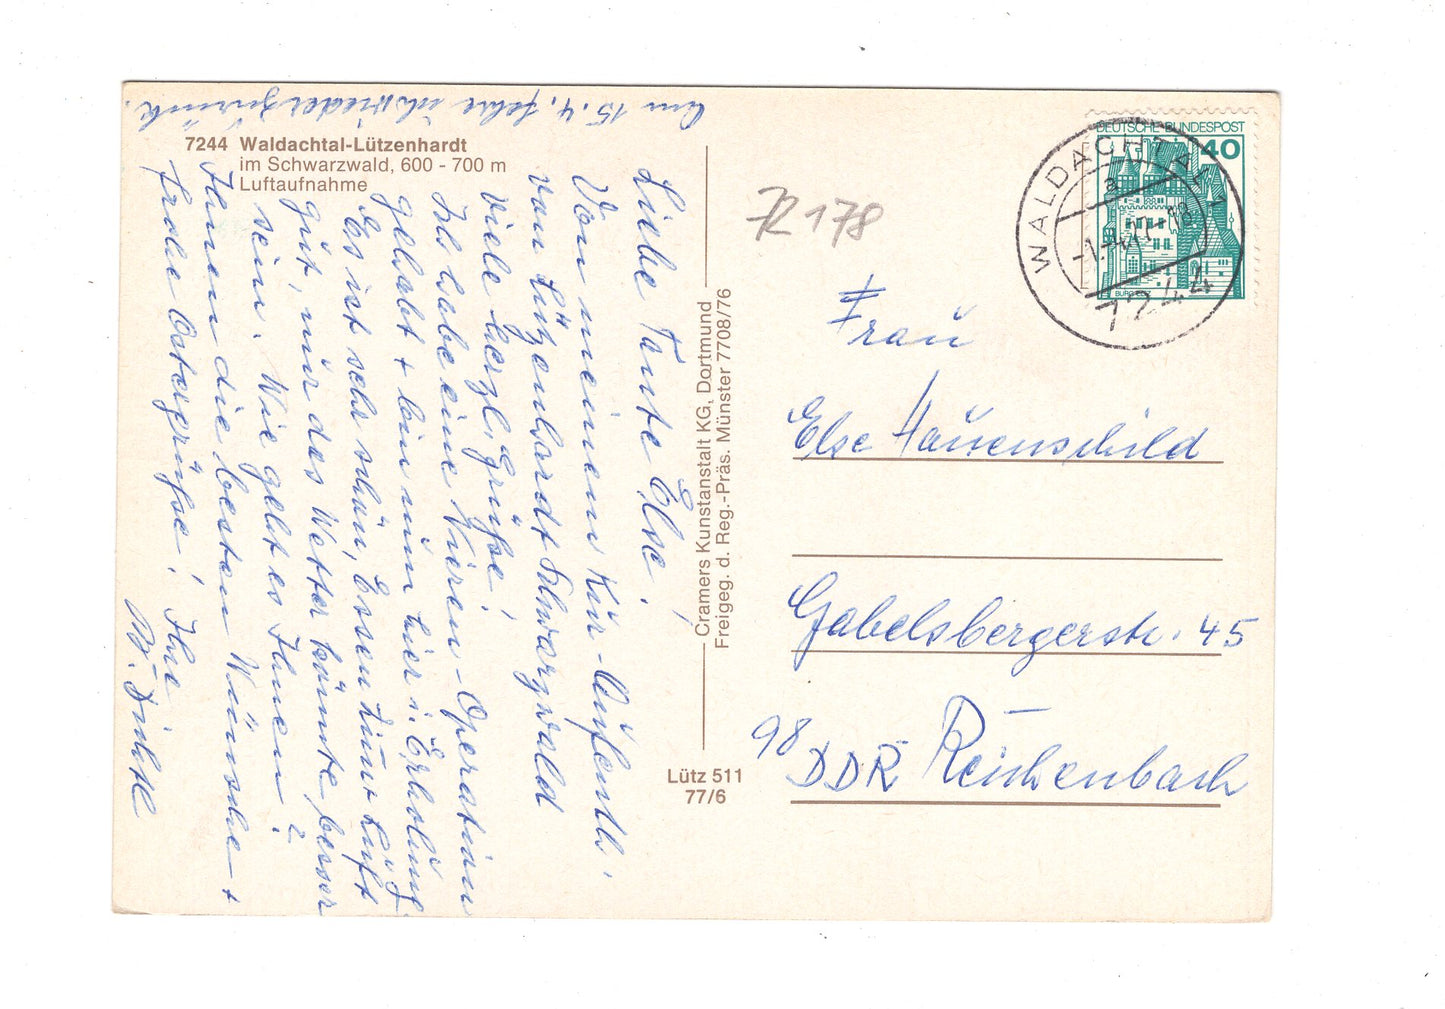 7244 Waldachtal-Lützenhardt
im Schwarzwald, 600 - 700 m
Luftaufnahme
Liebe Tante Else!
Von meinem Kur-Aufenth.
von Lützenhardt Schwarzwald
viele herzl. Grüße!
Ich habe eine Nieren-Operation
gehabt + bin nun hier i. Erholung
Es ist sehr schön, Essen Zim + Luft
gut, nur das Wetter könnte besser
sein. Wie geht es Ihnen?
Ihnen die besten Wünsche +
frohe Ostergrüße! Ihre
Am 15.4. fahre ich wieder zurück.
Cramers Kunstanstalt KG, Dortmund
Freigeg. d. Reg.-Präs. Münster 7708/76
Lütz 511
77/6
R178
DEUTSCHE BUNDESPOST
40
BURG ELTZ
WALDACHTAL 1
a
7244
Frau
Else Hauenschild
Gabelsbergerstr. 45
98
DDR Reichenbach